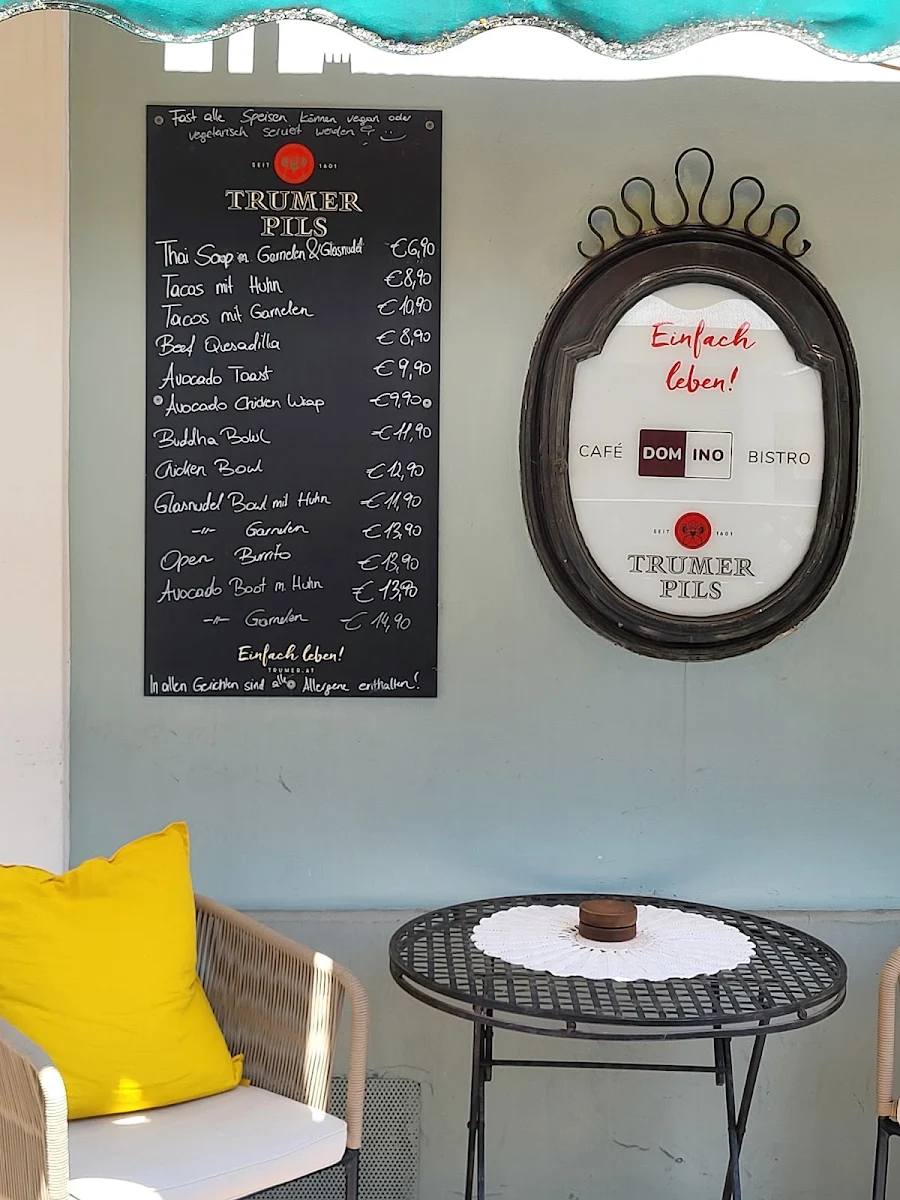 Fast alle Speisen können vegan oder
vegetarisch serviert werden
SEIT 1601
TRUMER
PILS
Thai Soap m Garnelen & Glasnudel €6,90
Tacos mit Huhn €8,90
Tacos mit Garnelen €10,90
Beef Quesadilla €8,90
Avocado Toast €9,90
Avocado Chicken Wrap €9,90
Buddha Bowl €11,90
Chicken Bowl €12,90
Glasnudel Bowl mit Huhn €11,90
-"- Garnelen €13,90
Open Burrito €13,90
Avocado Boot m. Huhn €13,90
-"- Garnelen €14,90
Einfach leben!
TRUMER.AT
In allen Gerichten sind alle Allergene enthalten!
Einfach
leben!
CAFÉ DOMINO BISTRO
SEIT 1601
TRUMER
PILS